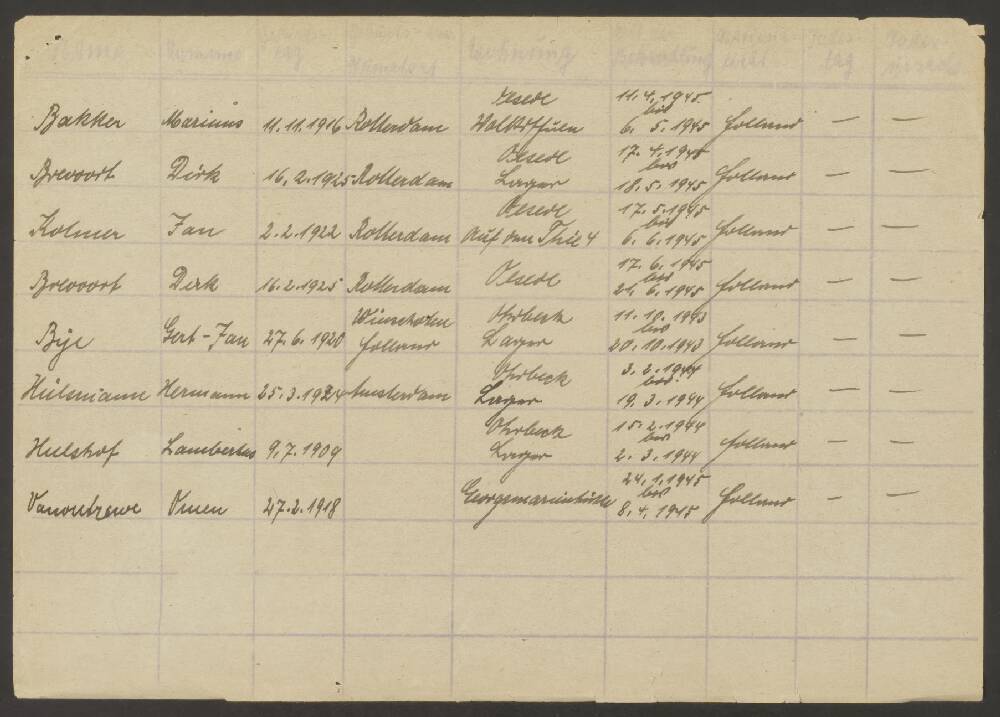 Name Vorname Geburts-tag Wohnung Behandlung Todes-tag Todes-ursache
Oesede 11.4.1945
bis
Bakker Marinus 11.11.1916 Rotterdam 6.5.1945 Holland — —
Oesede 17.4.1945
bis
Brevoort Dirk 16.2.1925 Rotterdam Lager 18.5.1945 Holland — —
Oesede 17.5.1945
bis
Kolmer Jan 2.2.1922 Rotterdam Auf den Thie 4 6.6.1945 Holland — —
17.6.1945
bis
Brevoort Derk 16.2.1925 Rotterdam Oesede 21.6.1945 Holland — —
Ohrbeck 11.10.1943
bis
Bije Gert-Jan 27.6.1920 Holland Lager 20.10.1943 Holland — —
Ohrbeck 3.2.1944
bis
Hülsmann Hermann 25.3.1924 Amsterdam Lager 19.3.1944 Holland — —
Ohrbeck 15.2.1944
bis
Hulshof Lambertus 9.7.1909 Lager 2.3.1944 Holland — —
24.1.1945
bis
27.2.1918 Georgsmarienhütte 8.4.1945 Holland — —